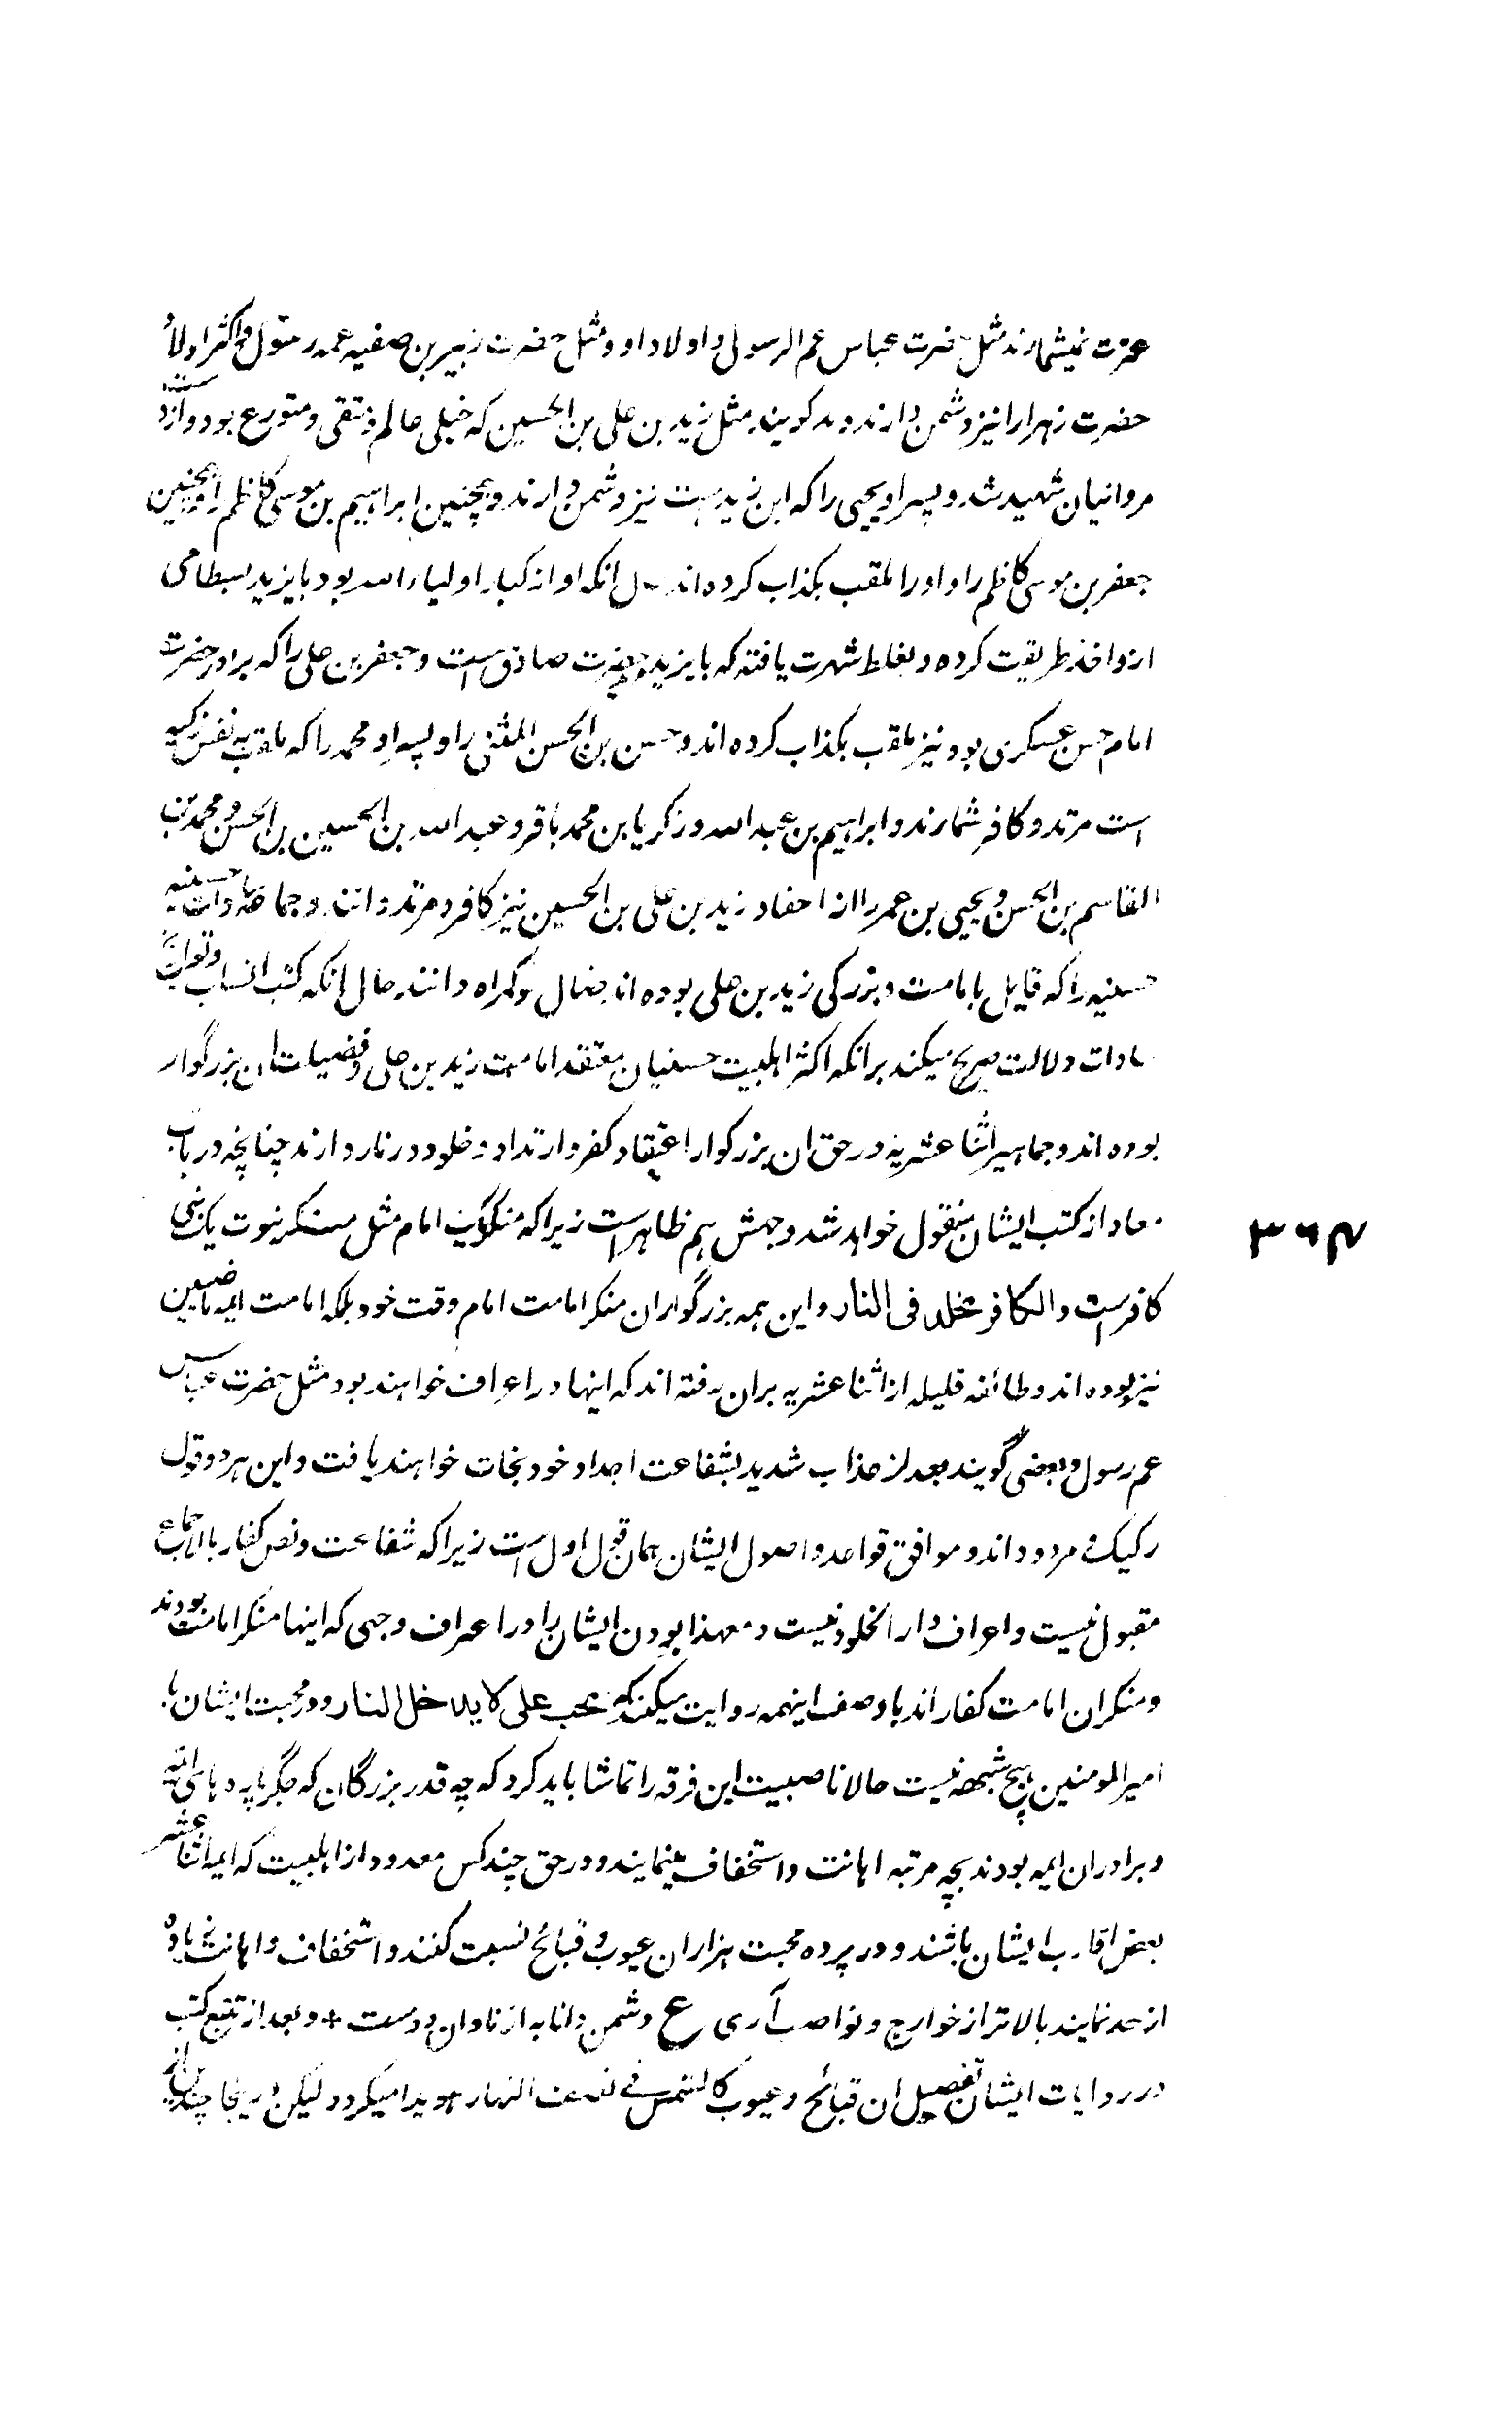 عترت نمیشمارند مثل حضرت عباس عم الرسول و اولاد او و مثل حضرت زبیر بن صفیه عمه رسول و اکثر اولاد
حضرت زهرا را نیز دشمن دارند و بد کویند مثل زید بن علی بن الحسین که خیلی عالم و متقی و متورع بود و از دست
مروانیان شهید شد و پسر او یحیی را که ابن زید است نیز دشمن دارند و همچنین ابراهیم بن موسی کاظم را و همچنین
جعفر بن موسی کاظم را و او را ملقب بکذاب کرده اند حال انکه او از کبار اولیاء الله بود بایزید بسطامی
ازو اخذ طریقت کرده و بغلط شهرت یافته که بایزید مرید حضرت صادق است و جعفر بن علی را که برادر حضرت
امام حسن عسکری بود نیز ملقب بکذاب کرده اند و حسن بن الحسن المثنی را و پسر او محمد را که ملقب به نفس زکیه
است مرتد و کافر شمارند و ابراهیم بن عبد الله و زکریا بن محمد باقر و عبد الله بن الحسین بن الحسن و محمد بن
القاسم بن الحسن و یحیی بن عمر را از احفاد زید بن علی بن الحسین نیز کافر و مرتد دانند و جماعه سادات حسنیه
حسینیه را که قایل بامامت و بزرکی زید بن علی بوده اند ضال و کمراه دانند حال انکه کتب انساب و تواریخ
سادات دلالت صریح میکند برانکه اکثر اهلبیت حسنیان معتقد امامت زید بن علی و فضیلت ان بزرگوار
بوده اند و جماهیر اثنا عشریه در حق ان بزرکوار اعتقاد کفر و ارتداد و خلود در نار دارند چنانچه در باب
معاد از کتب ایشان منقول خواهد شد و جهش هم ظاهر است زیرا که منکر امامت یک امام مثل منکر نبوت یک نبی
کافر است والکافر مخلد فی النار و این همه بزرگواران منکر امامت امام وقت خود بلکه امامت ایمه ماضیین
نیز بوده اند و طائفه قلیله از اثنا عشریه بران رفته اند که اینها در اعراف خواهند بود مثل حضرت عباس
عم رسول و بعضی گویند بعد از عذاب شدید بشفاعت اجداد خود نجات خواهند یافت و این هر دو قول
رکیک و مردود اند و موافق قواعد و اصول ایشان همان قول اول است زیرا که شفاعت و نص کفار بالاجماع
مقبول نیست و اعراف دار الخلود نیست و معهذا بودن ایشان را در اعراف وجهی که اینها منکر امامت بودند
و منکران امامت کفار اند با وصف اینهمه روایت میکنند که محب علی لا یدخل النار و در محبت ایشان با
امیر المومنین هیچ شبهه نیست حالا ناصبیت این فرقه را تماشا باید کرد که چه قدر بزرگان که جگر پاره های ایمه
و برادران ایمه بودند بچه مرتبه اهانت و استخفاف مینمایند و در حق چند کس معدود از اهلبیت که ایمه اثنا عشر
بعض اقارب ایشان باشند و در پرده محبت هزاران عیوب و قبائح نسبت کنند و استخفاف و اهانت زیاده
از حد نمایند بالاتر از خوارج و نواصب آری ع دشمن دانا به از نادان دوست + و بعد از تتبع کتب
در روایات ایشان تفصیل ان قبائح و عیوب کالشمس فی نصف النهار هویدا میکردد لیکن در اینجا چندی از ان
۳۶۴